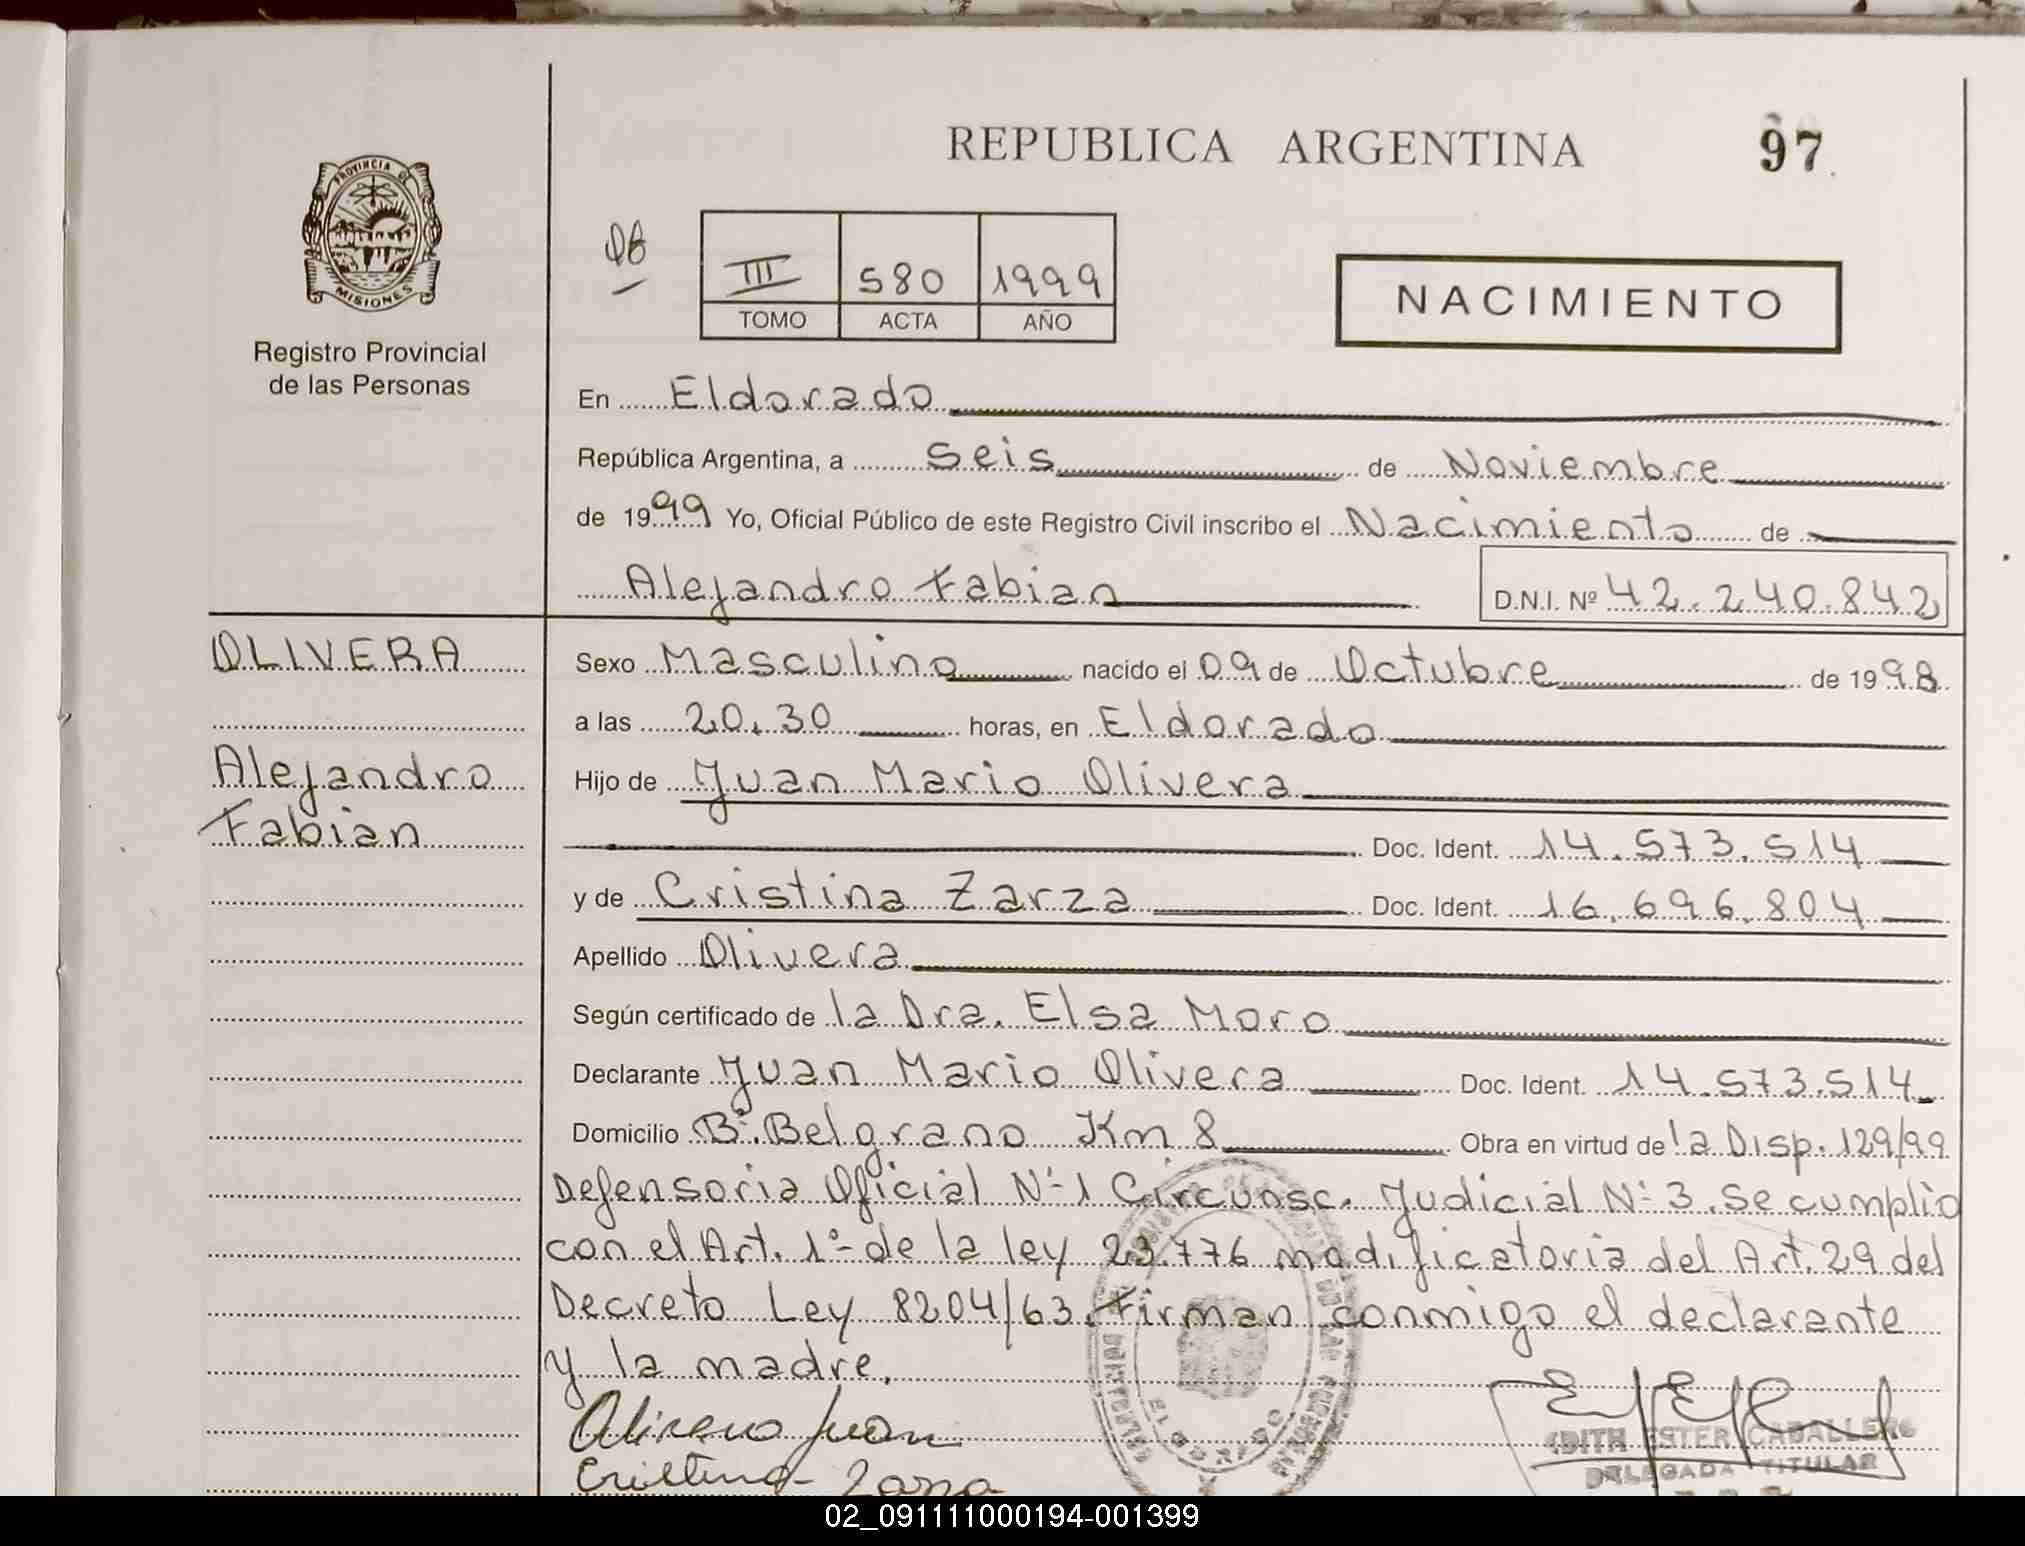 REPUBLICA ARGENTINA
97
PROVINCIA DE
MISIONES
Registro Provincial
de las Personas
III 580 1999
TOMO ACTA AÑO
NACIMIENTO
En Eldorado
República Argentina, a seis de Noviembre
de 1999 Yo, Oficial Público de este Registro Civil inscribo el Nacimiento de
Alejandro Fabian D.N.I. Nº 42.240.842
OLIVERA
Alejandro
Fabian
Sexo Masculino nacido el 09 de Octubre de 1998
a las 20.30 horas, en Eldorado
Hijo de Juan Mario Olivera
Doc. Ident. 14.573.514
y de Cristina Zarza Doc. Ident. 16.696.804
Apellido Olivera
Según certificado de la Dra. Elsa Moro
Declarante Juan Mario Olivera Doc. Ident. 14.573.514
Domicilio Bº.Belgrano Km 8 Obra en virtud de la Disp. 129/99
Defensoria Oficial Nº1 Circunsc. Judicial Nº3. Se cumplio
con el Art. 1º de la ley 23.776 modificatoria del Art. 29 del
Decreto Ley 8204/63. Firman conmigo el declarante
y la madre.
Olivera Juan
Cristina Zarza
EDITH ESTER CABALLERO
DELEGADA TITULAR
ELDORADO
02_091111000194-001399